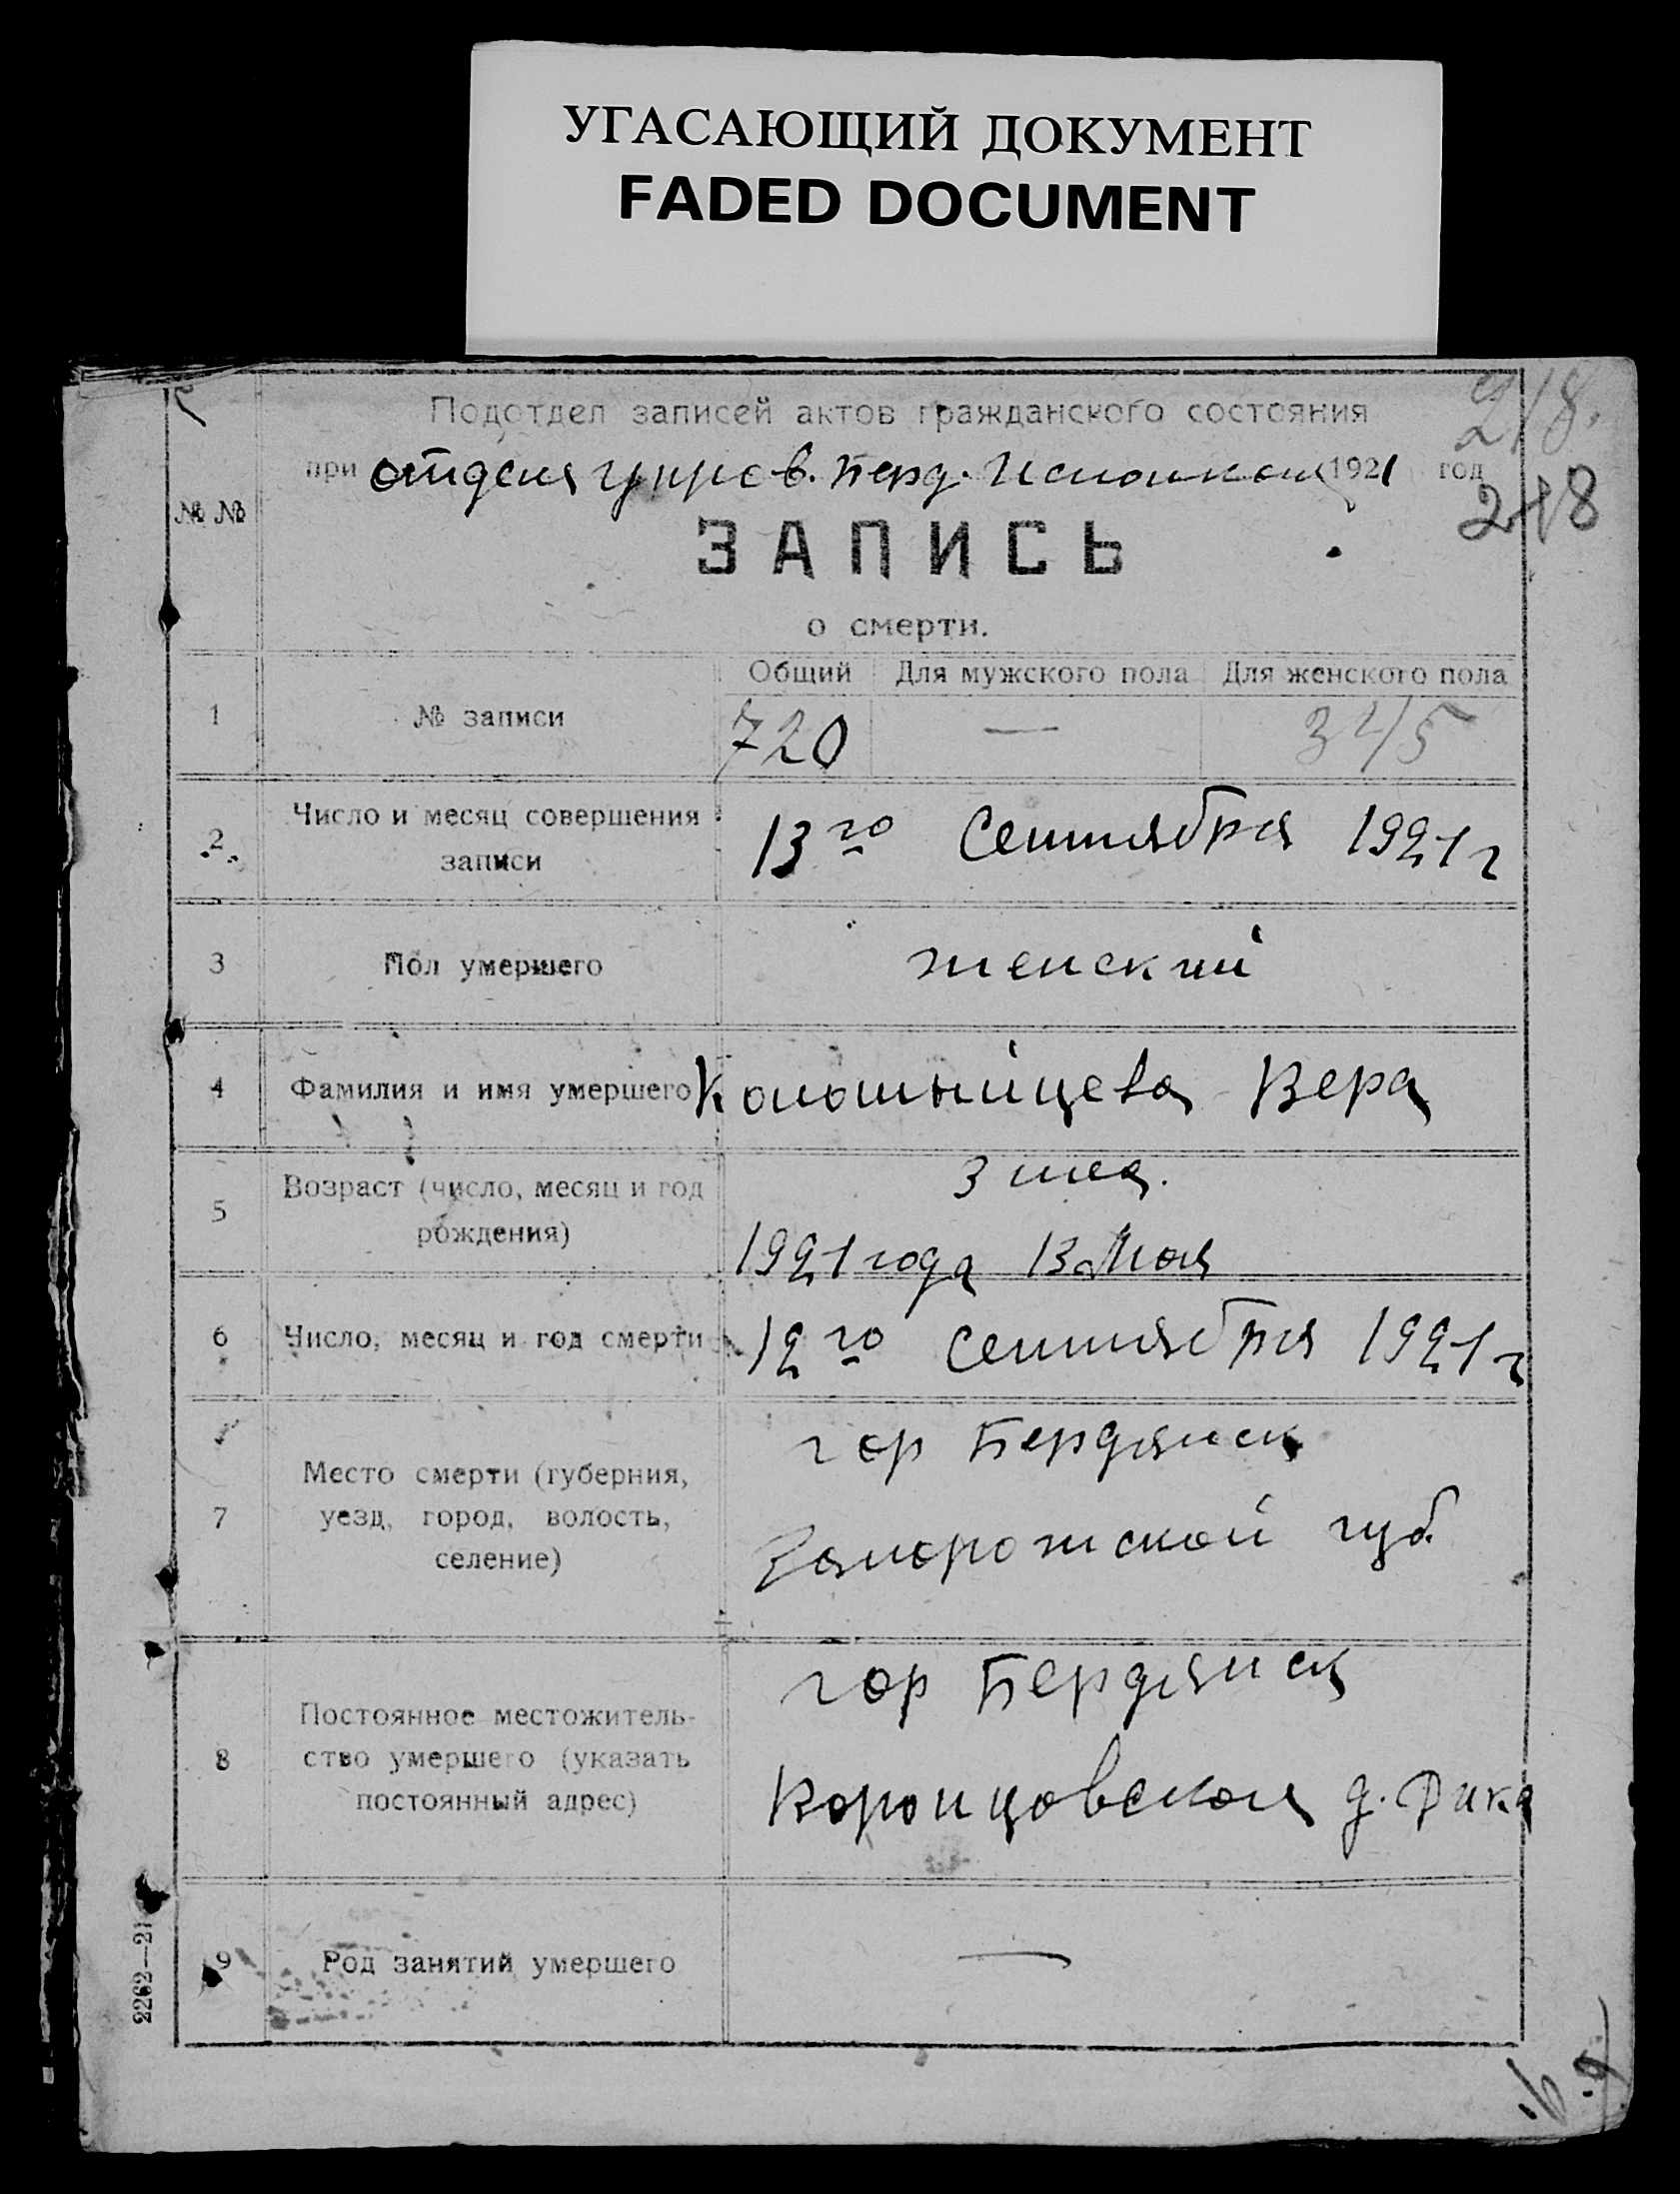 УГАСАЮЩИЙ ДОКУМЕНТ
FADED DOCUMENT
Подотдел записей актов гражданского состояния
при отдела управ. Берд. Исполкома 1921 год
218.
218
№ №
ЗАПИСЬ
о смерти.
Общий Для мужского пола Для женского пола
1 № записи 720 — 345
2 Число и месяц совершения записи 13го Сентября 1921 г
3 Пол умершего женский
4 Фамилия и имя умершего Вера
5 Возраст (число, месяц и год рождения) 3 мес.
1921 года 13 Мая
6 Число, месяц и год смерти 12го Сентября 1921 г
7 Место смерти (губерния, уезд, город, волость, селение) гор Бердянск
Запорожской губ.
8 Постоянное местожительство умершего (указать постоянный адрес) гор Бердянск
Воронцовская д. Дика
9 Род занятий умершего —
2262—21